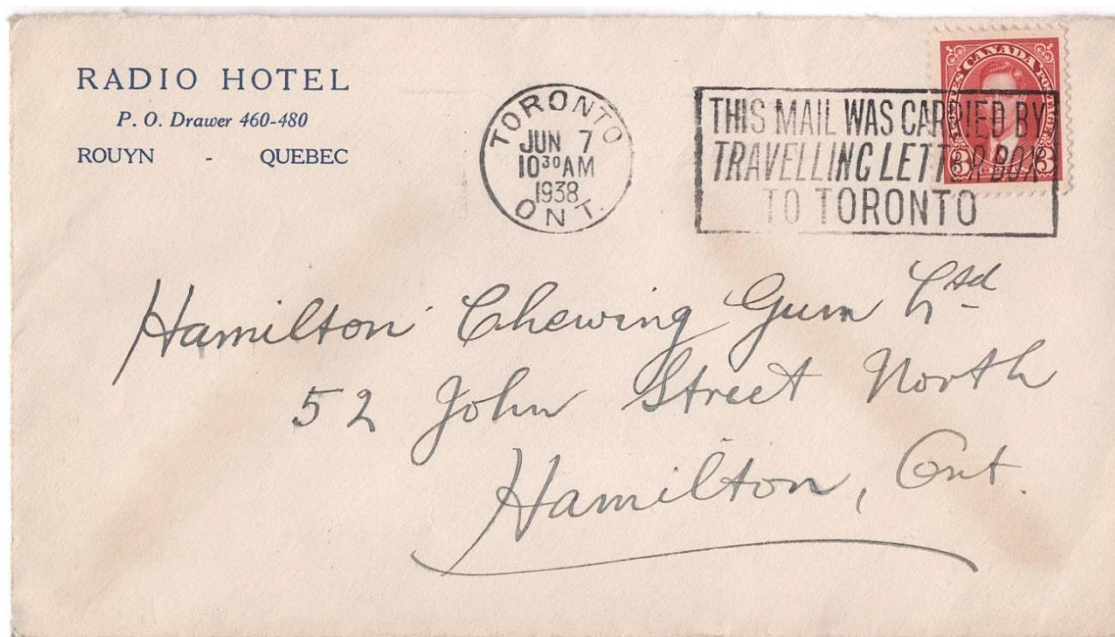 RADIO HOTEL
P. O. Drawer 460-480
ROUYN - QUEBEC
TORONTO
JUN 7
10³⁰AM
1938
ONT.
THIS MAIL WAS CARRIED BY
TRAVELLING LETTER BOX
TO TORONTO
POSTES CANADA POSTAGE
3 3
Hamilton Chewing Gum Ltd
52 John Street North
Hamilton, Ont.